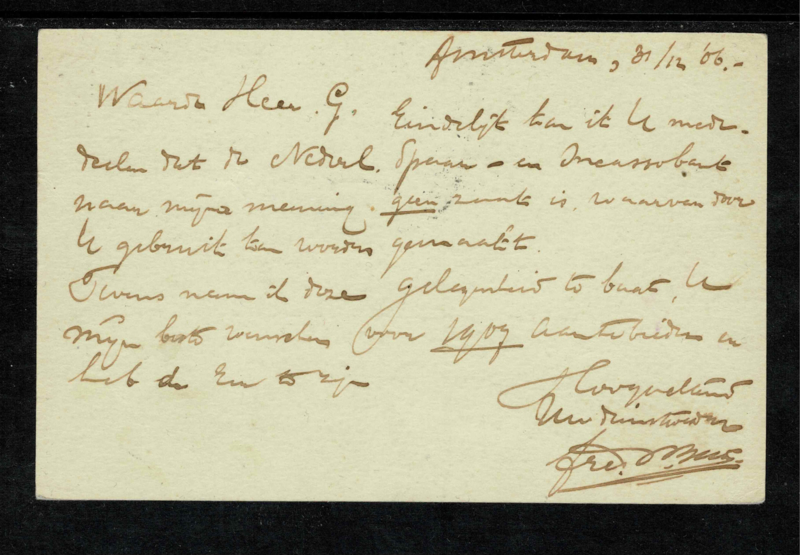 Amsterdam, 31/12 '06.-
Waarde Heer G. Eindelijk kan ik U mede-
deelen dat de Nederl. Spaar- en Incassobank
naar mijne meening geen zaak is, waarvan door
U gebruik kan worden gemaakt.
Tevens neem ik deze gelegenheid te baat, U
mijn beste wenschen voor 1907 aantebieden en
heb de Eer te zijn
Hoogachtend
Uw dienstwillige
Fred.